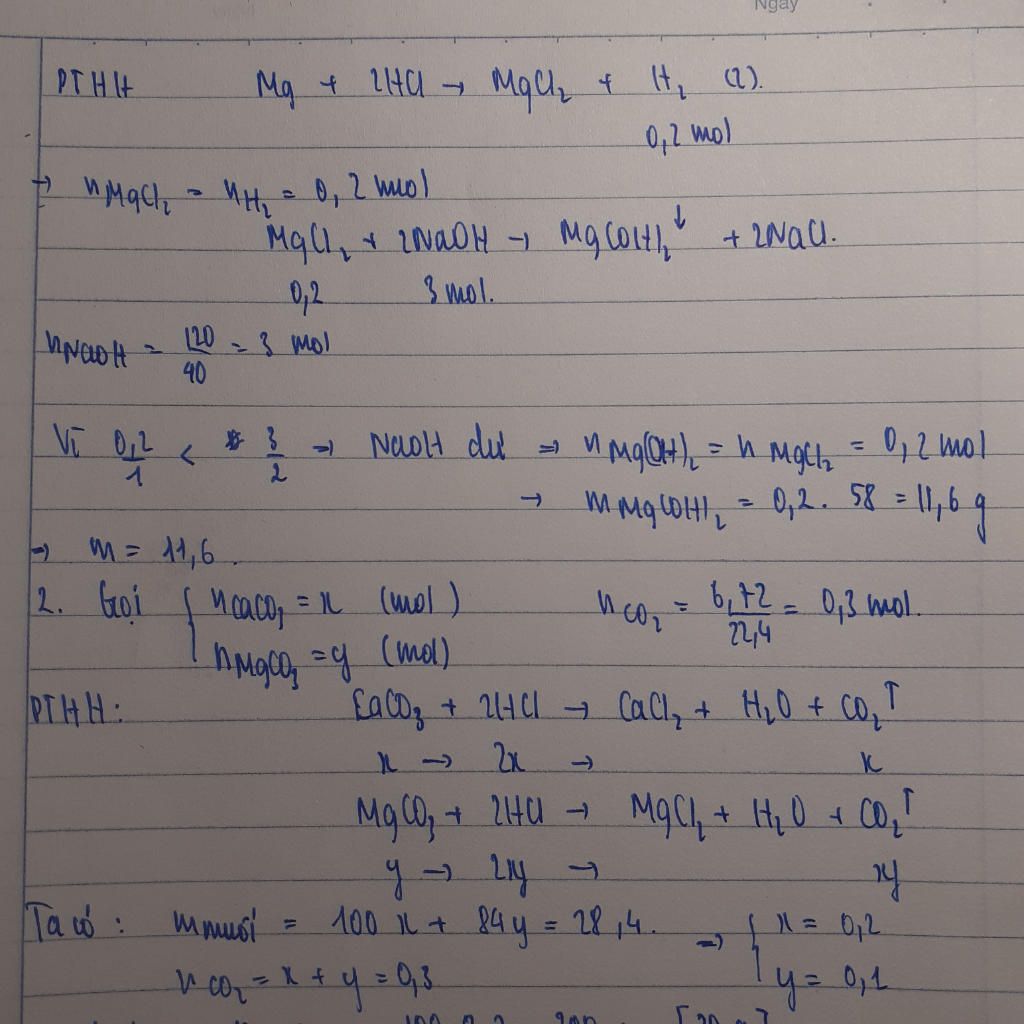 Ngày
PTHH Mg + 2HCl → MgCl₂ + H₂ (2).
0,2 mol
→ nMgCl₂ = nH₂ = 0,2 mol
MgCl₂ + 2NaOH → Mg(OH)₂↓ + 2NaCl.
0,2 3 mol.
nNaOH = 120/40 = 3 mol
Vì 0,2/1 < 3/2 → NaOH dư ⇒ nMg(OH)₂ = nMgCl₂ = 0,2 mol
→ mMg(OH)₂ = 0,2. 58 = 11,6 g
→ m = 11,6.
2. Gọi { nCaCO₃ = x (mol) nCO₂ = 6,72/22,4 = 0,3 mol.
nMgCO₃ = y (mol)
PTHH: CaCO₃ + 2HCl → CaCl₂ + H₂O + CO₂↑
x → 2x → x
MgCO₃ + 2HCl → MgCl₂ + H₂O + CO₂↑
y → 2y → y
Ta có: mmuối = 100x + 84y = 28,4. ⇒ { x = 0,2
nCO₂ = x + y = 0,3 y = 0,1